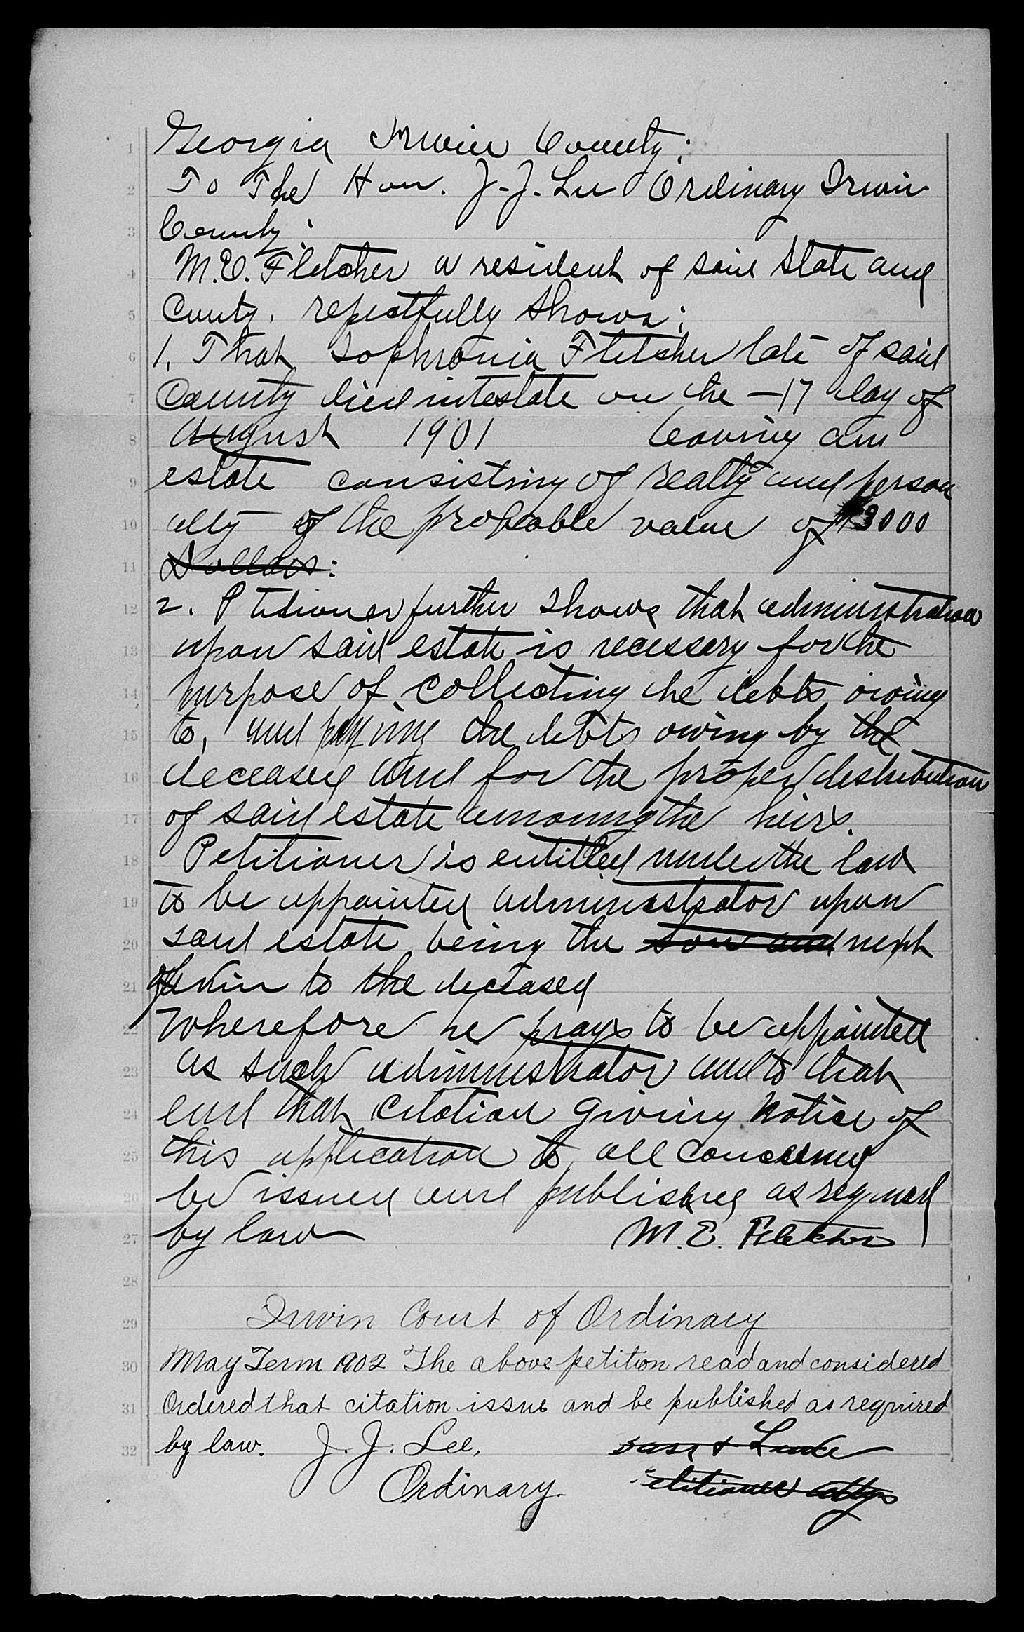 Georgia Irwin County:
To The Hon. J. J. Lee Ordinary Irwin
County:
M. E. Fletcher a resident of said State and
County. repectfully shows:
1. That Sophronia Fletcher late of said
County died intestate on the -17 day of
August 1901 leaving an
estate consisting of realty and person
ally of the probable value of $3000
Dollars:
2. Petitioner further shows that administration
upon said estate is necessery for the
purpose of collecting the debts owing
to, and paying the debts owing by the
deceased and for the proper distribution
of said estate among the heirs.
Petitioner is entitled under the law
to be appointed administrator upon
said estate being the son and next
of kin to the deceased
Wherefore he prays to be appointed
as such administrator and to that
end that citation giving notice of
this application to all concerned
be issued and published as required
by law
M. E. Fletcher
Irwin Court of Ordinary
May Term 1902 The above petition read and considered
Ordered that citation issue and be published as required
by law. J. J. Lee,
Ordinary.
& Luke
Petitioner attys